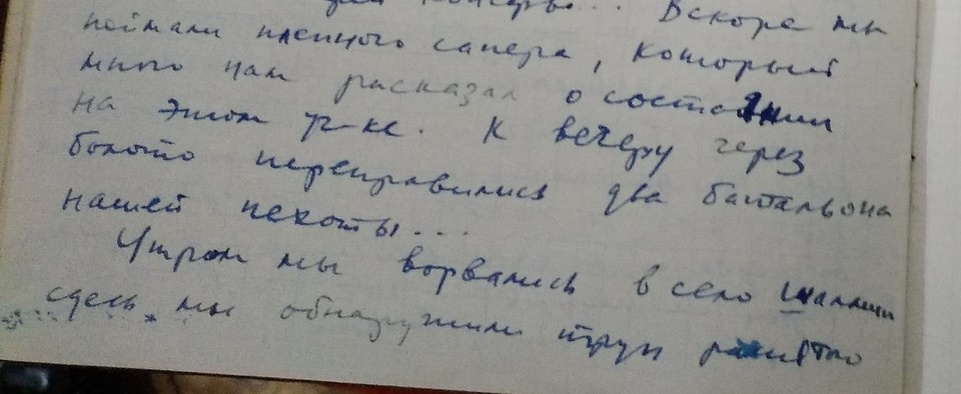 консервы... Вскоре мы
поймали пленного сапера, который
много нам рассказал о состоянии
на этом уч-ке. К вечеру через
болото переправились два батальона
нашей пехоты...
Утром мы ворвались в село
сдесь мы обнаружили труп